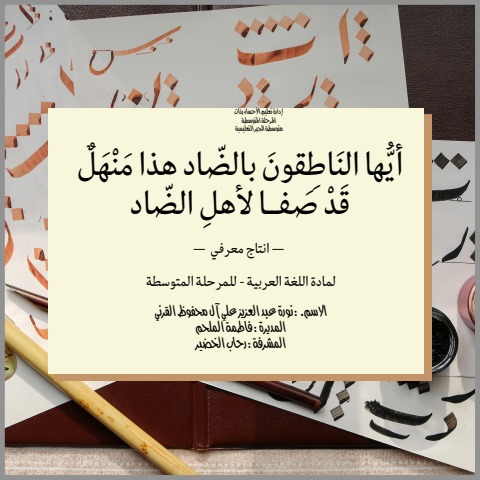 إدارة تعليم الأحساء بنات
المرحلة المتوسطة
متوسطة الجبر التعليمية
أيُّها النَاطِقونَ بالضّاد هذا مَنْهَلٌ
قَدْ صَفا لأهلِ الضّاد
— انتاج معرفي —
لمادة اللغة العربية - للمرحلة المتوسطة
الاسم. : نورة عبد العزيز علي آل محفوظ القرني
المديرة : فاطمة الملحم
المشرفة : رحاب الخضير